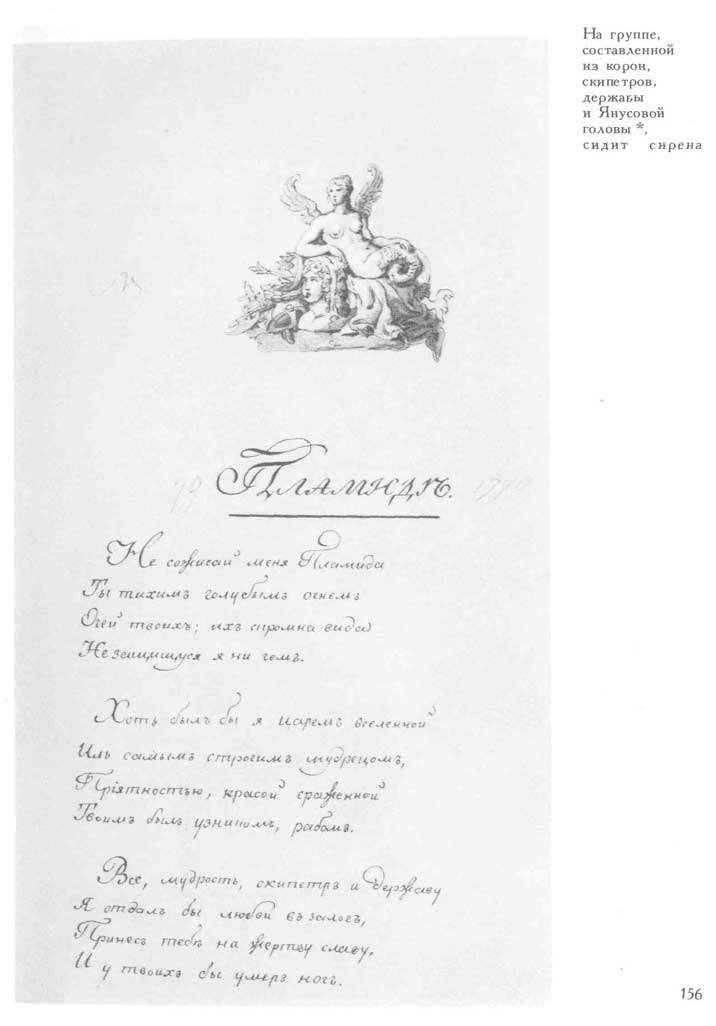 На группе,
составленной
из корон,
скипетров,
державы
и Янусовой
головы *,
сидит сирена
Пламидѣ.
Не сожигай меня Пламида
Ты тихимъ голубымъ огнемъ
Очей твоихъ; ихъ скромна вида
Не защищуся я ни чемъ.
Хоть былъ бы я царемъ вселенной
Иль самымъ строгимъ мудрецомъ,
Пріятностью, красой сраженной
Твоимъ былъ узникомъ, рабомъ.
Все, мудрость, скипетръ и державу
Я отдалъ бы любви въ залогъ,
Принесъ тебѣ на жертву славу,
И у твоихъ бы умеръ ногъ.
156